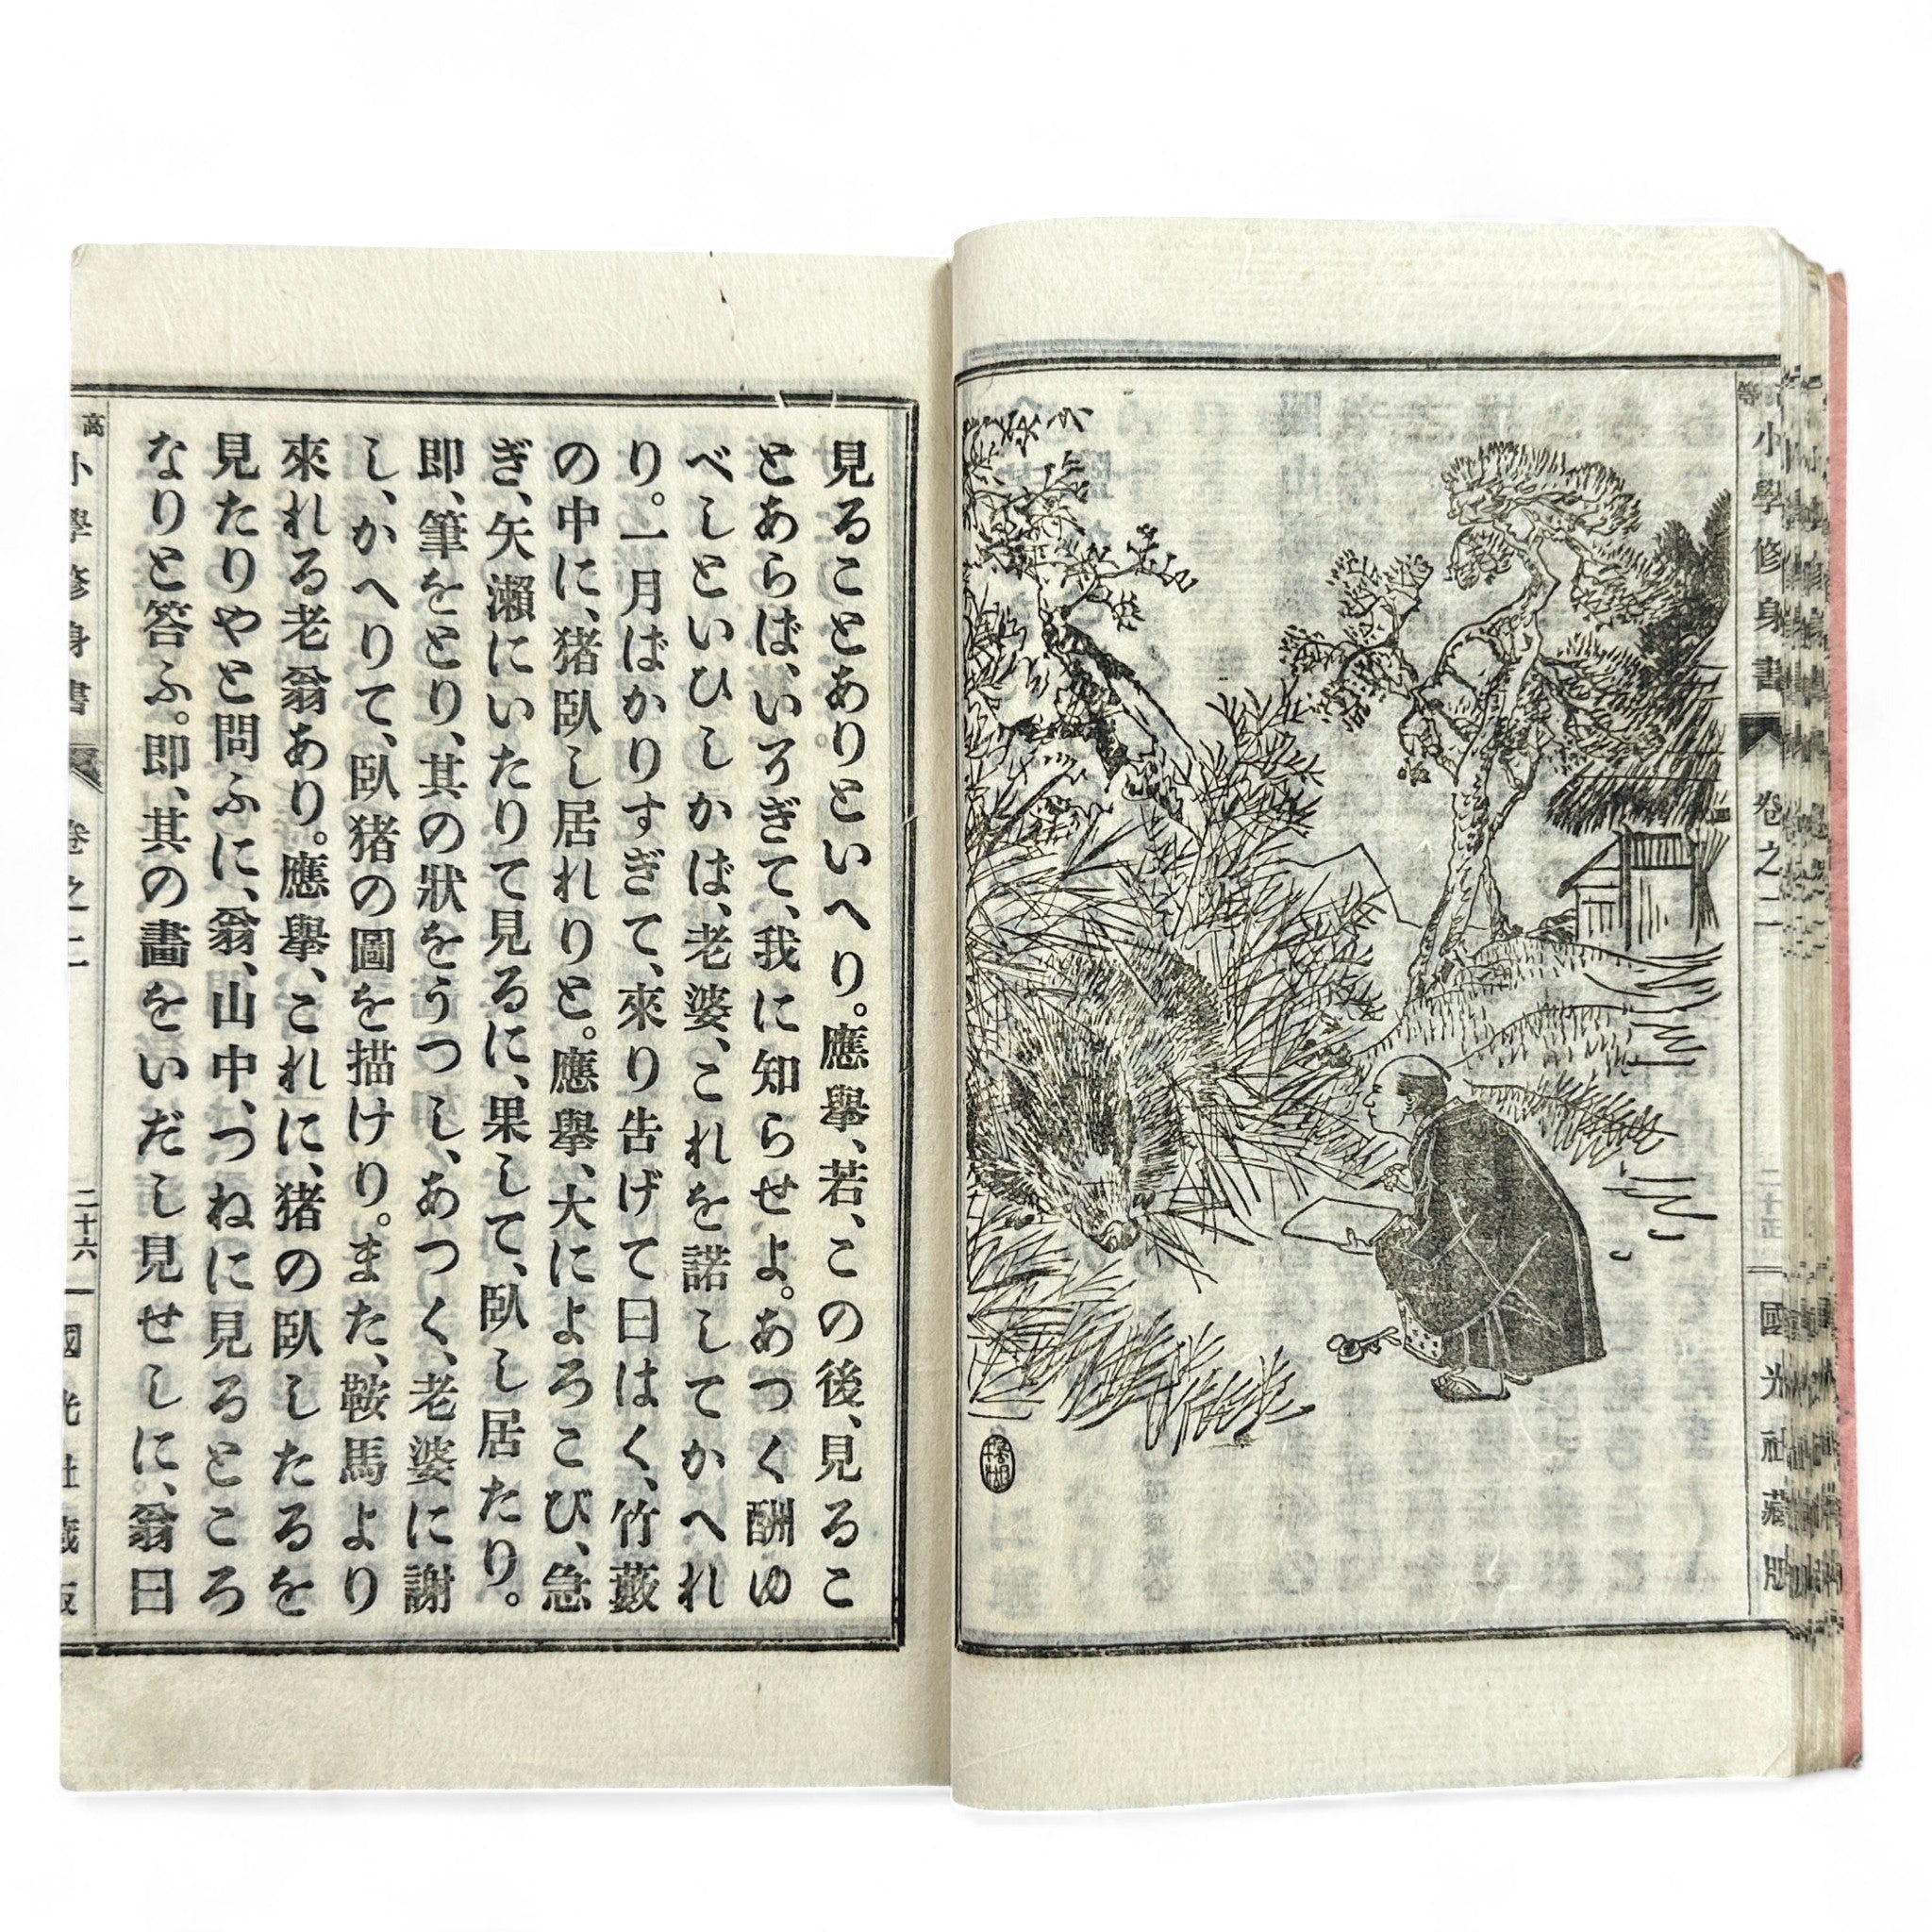 高等
小學修身書
卷之二
二十五
國光社藏版
見ることありといへり。應擧、若、この後、見るこ
とあらば、いろぎて、我に知らせよ。あつく酬ゆ
べしといひしかば、老婆、これを諾してかへれ
り。一月ばかりすぎて、來り告げて曰はく、竹藪
の中に、猪臥し居れりと。應擧、大によろこび、急
ぎ、矢瀬にいたりて見るに、果して、臥し居たり。
即、筆をとり、其の狀をうつし、あつく、老婆に謝
し、かへりて、臥猪の圖を描けり。また、鞍馬より
來れる老翁あり。應擧、これに、猪の臥したるを
見たりやと問ふに、翁、山中、つねに見るところ
なりと答ふ。即、其の畫をいだし見せしに、翁曰
高
小學修身書
卷之二
二十六
國光社藏版